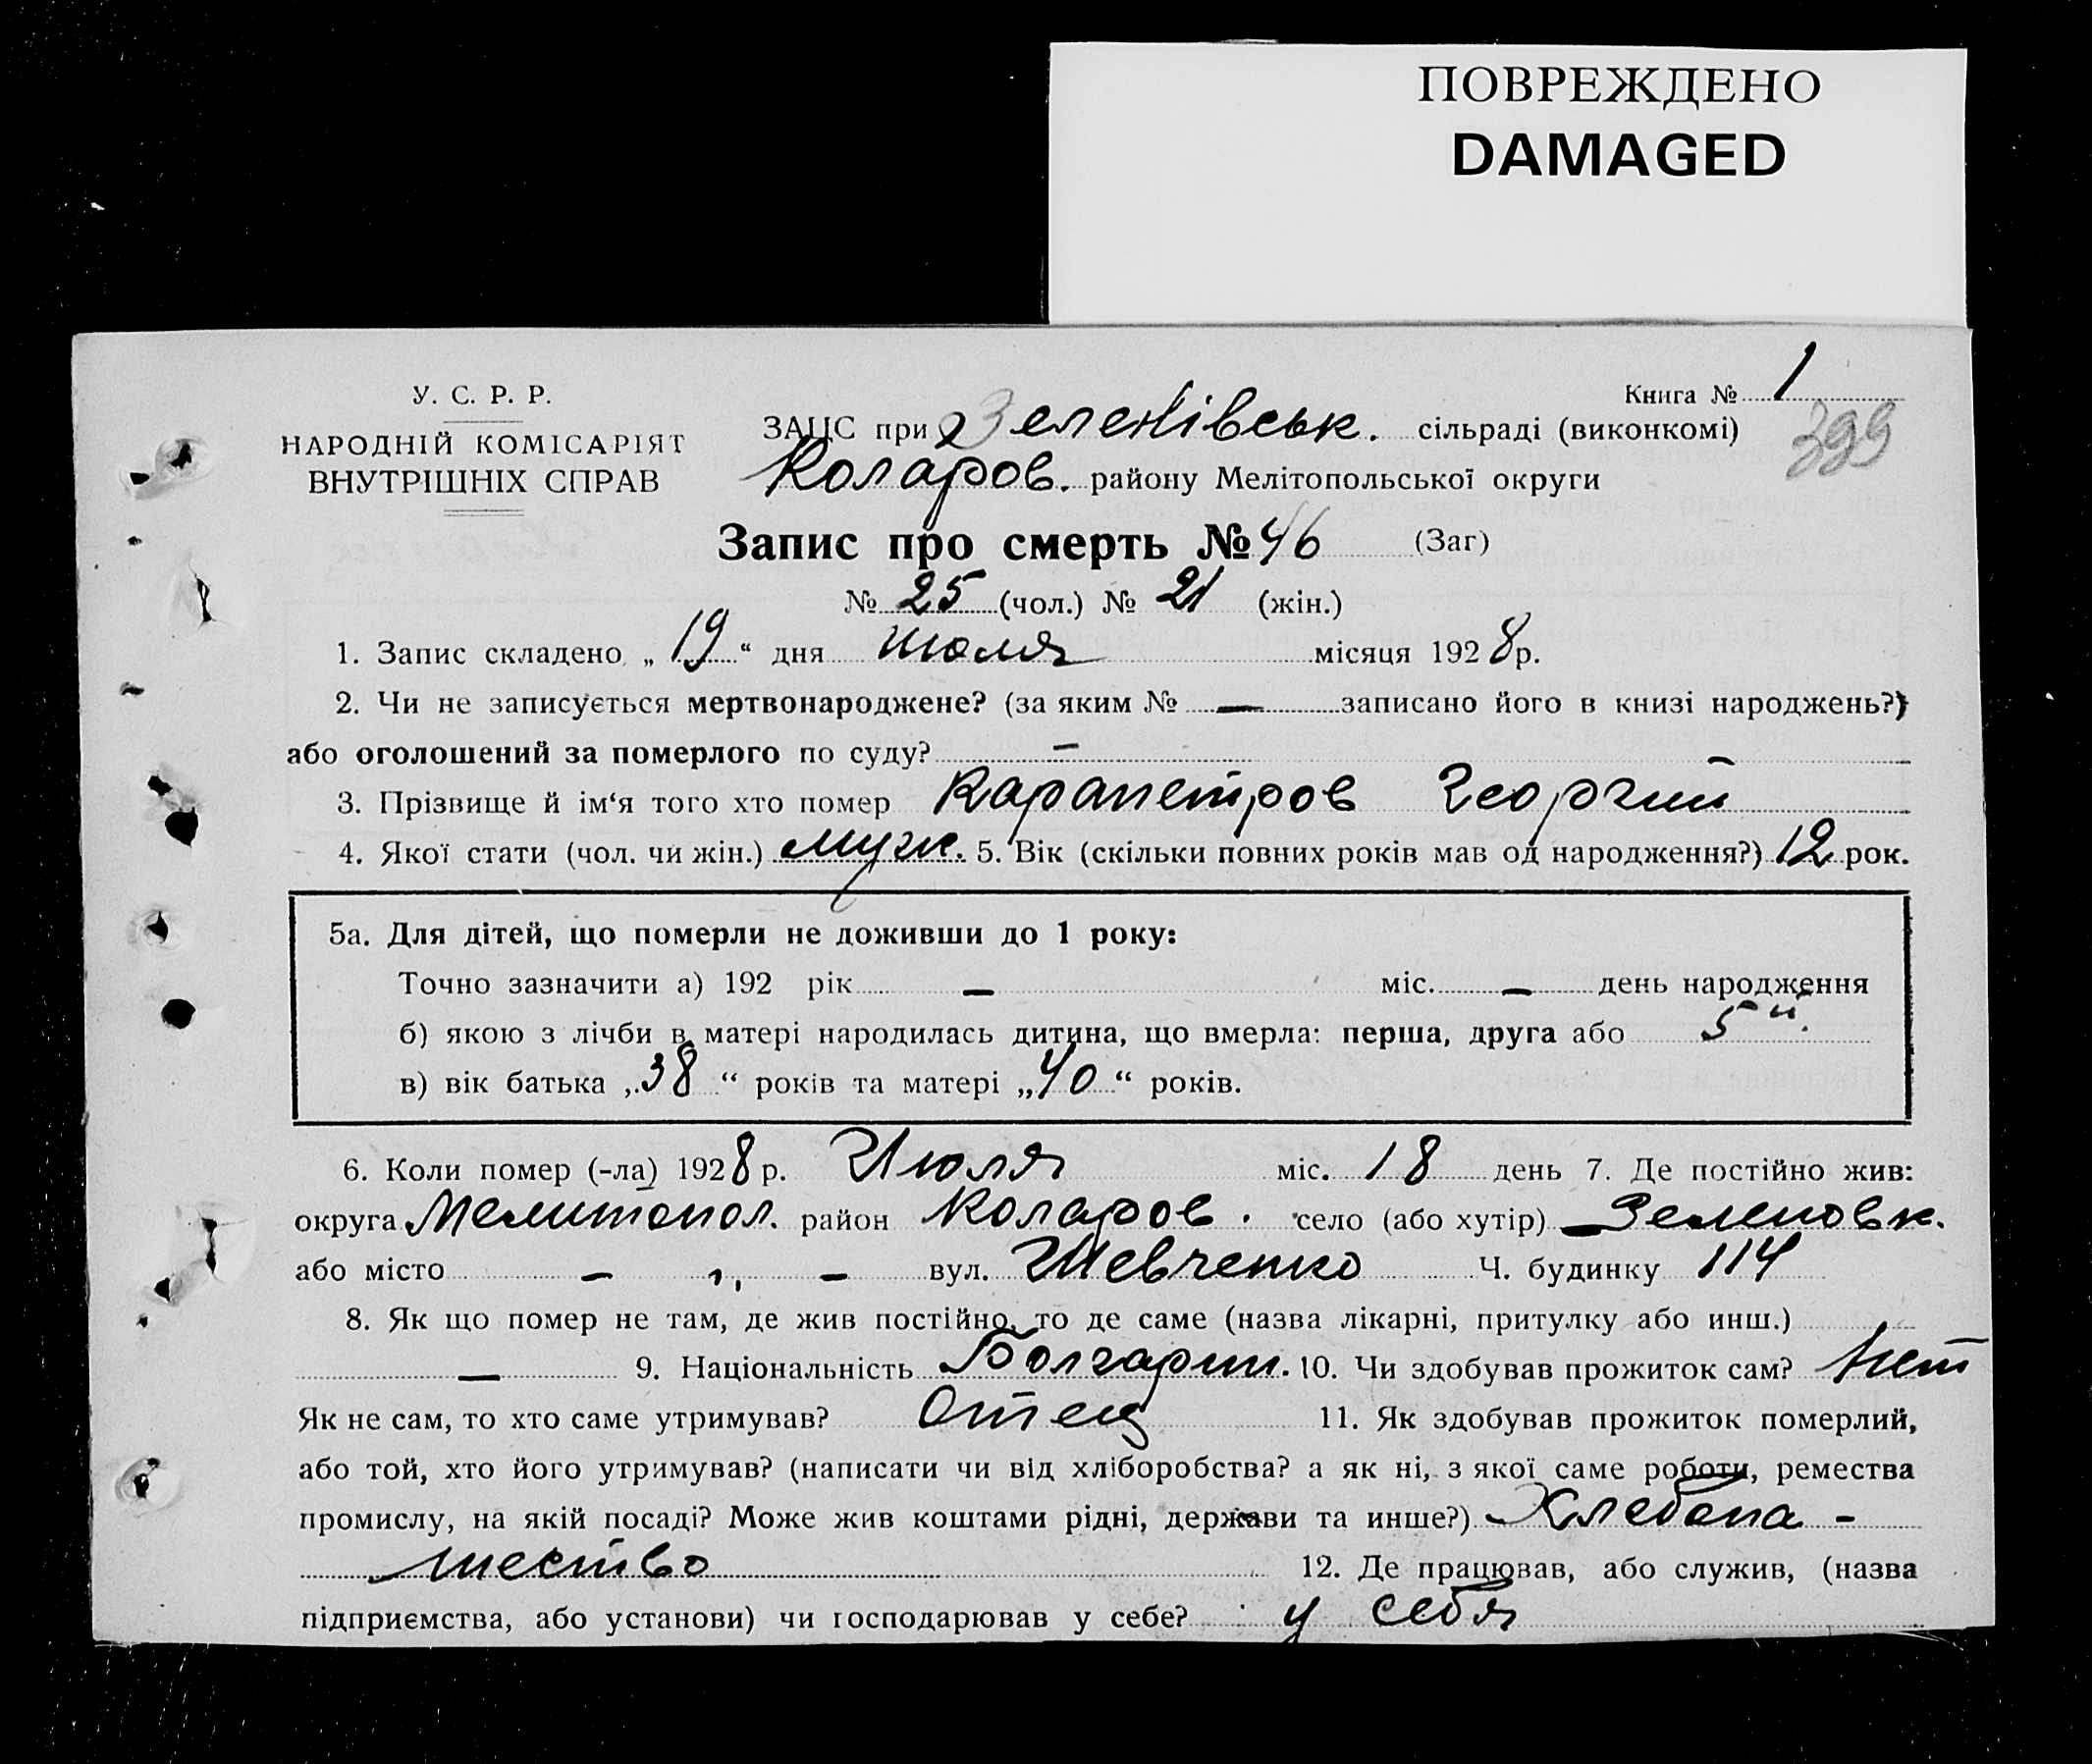 ПОВРЕЖДЕНО
DAMAGED
У. С. Р. Р.
НАРОДНІЙ КОМІСАРІЯТ
ВНУТРІШНІХ СПРАВ
Книга № 1
399
ЗАЦС при Зеленівськ. сільраді (виконкомі)
Коларов. району Мелітопольської округи
Запис про смерть № 46 (Заг)
№ 25 (чол.) № 21 (жін.)
1. Запис складено „ 19 “ дня июля місяця 1928р.
2. Чи не записується мертвонароджене? (за яким № — записано його в книзі народжень?)
або оголошений за померлого по суду? —
3. Прізвище й ім‘я того хто помер Карапетров Георгий
4. Якої стати (чол. чи жін.) муж. 5. Вік (скільки повних років мав од народження?) 12 рок.
5а. Для дітей, що померли не доживши до 1 року:
Точно зазначити а) 192 рік — міс. — день народження
б) якою з лічби в матері народилась дитина, що вмерла: перша, друга або 5й.
в) вік батька „38“ років та матері „40“ років.
6. Коли помер (-ла) 1928р. Июля міс. 18 день 7. Де постійно жив:
округа Мелитопол. район Коларов. село (або хутір) Зеленовк.
або місто — „ — вул. Шевченко Ч. будинку 114
8. Як що помер не там, де жив постійно, то де саме (назва лікарні, притулку або инш.)
— 9. Національність Болгарин. 10. Чи здобував прожиток сам? Нет
Як не сам, то хто саме утримував? Отец 11. Як здобував прожиток померлий,
або той, хто його утримував? (написати чи від хліборобства? а як ні, з якої саме роботи, ремества
промислу, на якій посаді? Може жив коштами рідні, держави та инше?) Хлебопа-
шество 12. Де працював, або служив, (назва
підприємства, або установи) чи господарював у себе? у себя